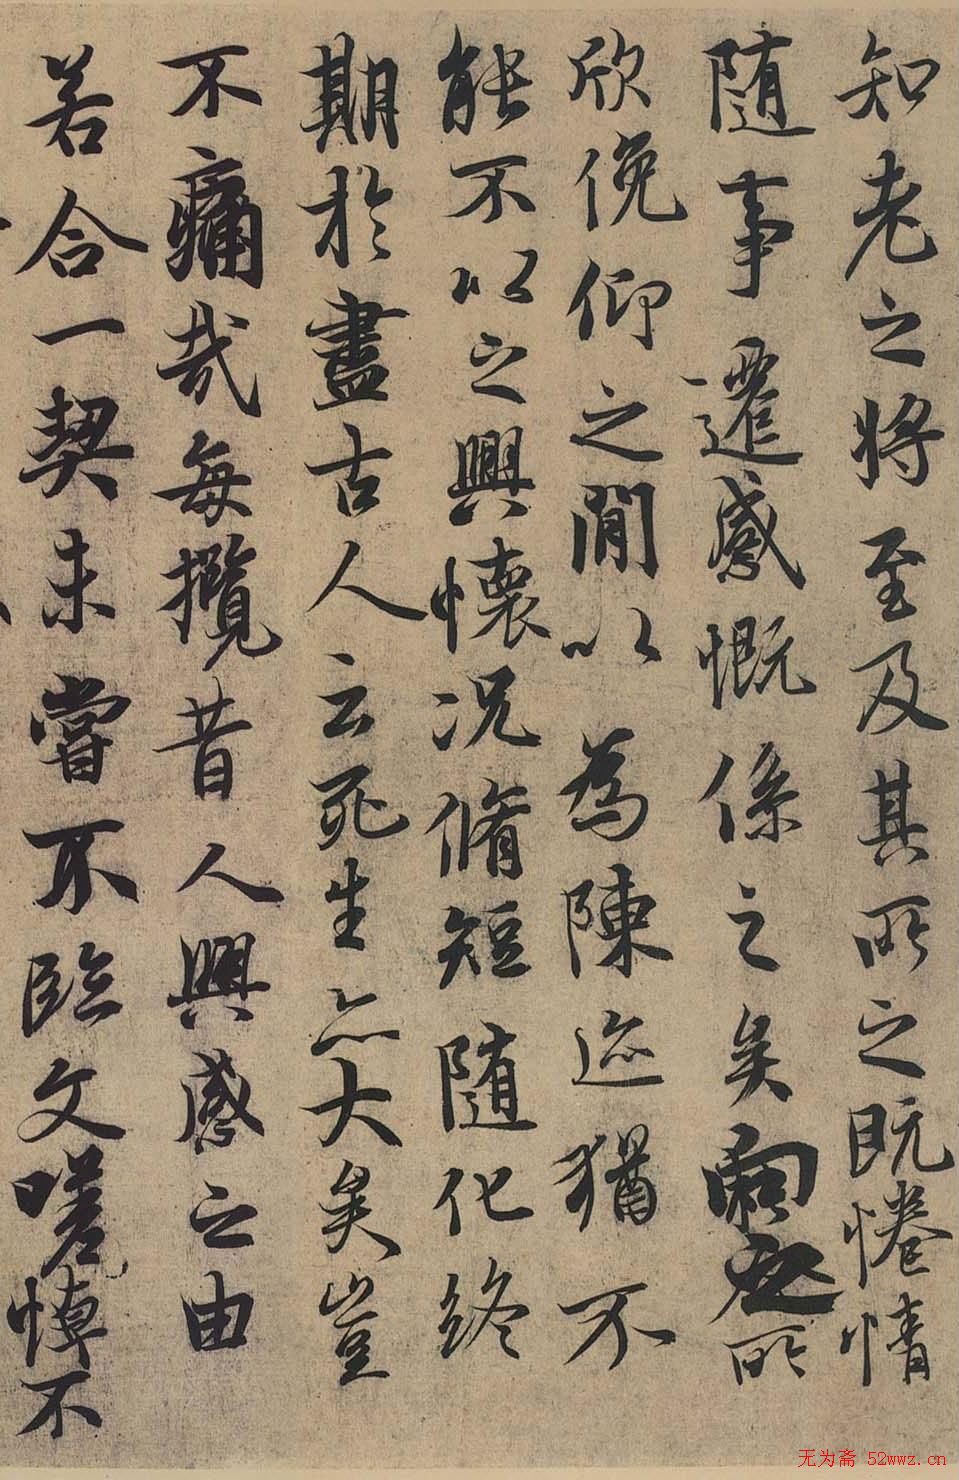 知老之將至及其所之既惓情
随事遷感慨係之矣向之所
欣俛仰之閒以為陳迹猶不
能不以之興懷况脩短随化終
期於盡古人云死生亦大矣豈
不痛哉每攬昔人興感之由
若合一契未甞不臨文嗟悼不
无为斋 52wwz.cn